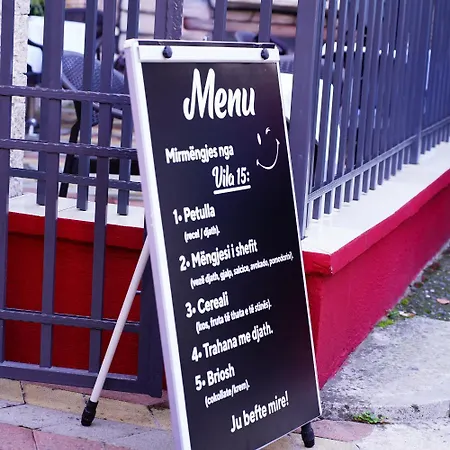 Menu
Mirmëngjes nga
Vila 15:
1• Petulla
(recel / djath).
2• Mëngjesi i shefit
(vezë djath, gjalp, salcice, avokado, pomodorini).
3• Cereali
(kos, fruta të thata e të stinës).
4• Trahana me djath.
5• Briosh
(cokollate/krem).
Ju befte mire!